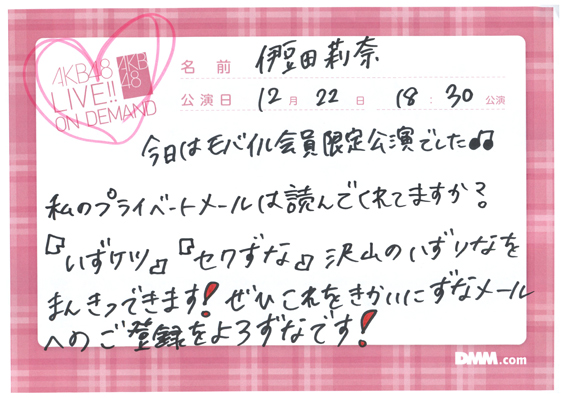 AKB48
LIVE!!
ON DEMAND
AKB
48
名前 伊豆田莉奈
公演日 12月 22日 18:30公演
今日はモバイル会員限定公演でした♫
私のプライベートメールは読んでくれてますか?
『いずケツ』『セクずな』沢山のいずりなを
まんきつできます!ぜひこれをきかいにずなメール
へのご登録をよろずなです!
DMM.com